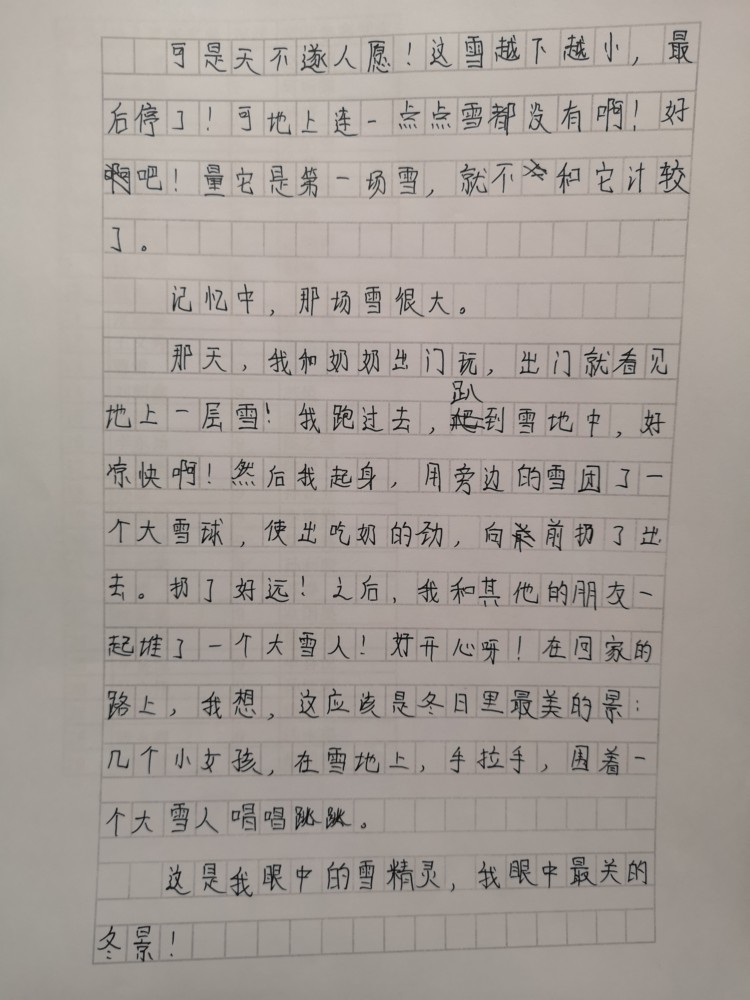 可是天不遂人愿！这雪越下越小，最
后停了！可地上连一点点雪都没有啊！好
啊吧！量它是第一场雪，就不和它计较
了。
记忆中，那场雪很大。
那天，我和奶奶出门玩，出门就看见
地上一层雪！我跑过去，趴到雪地中，好
凉快啊！然后我起身，用旁边的雪团了一
个大雪球，使出吃奶的劲，向前扔了出
去。扔了好远！之后，我和其他的朋友一
起堆了一个大雪人！好开心呀！在回家的
路上，我想，这应该是冬日里最美的景：
几个小女孩，在雪地上，手拉手，围着一
个大雪人唱唱跳跳。
这是我眼中的雪精灵，我眼中最美的
冬景！